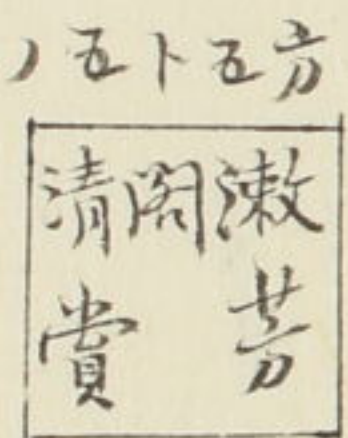 方五卜五ノ
漱芳
閣
清賞